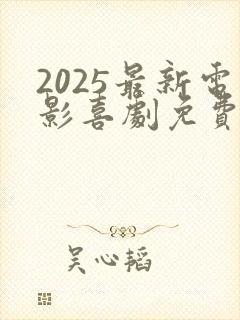 2025最新電
影喜劇免費
吴心韬